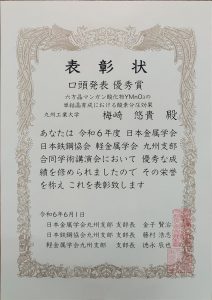 表彰状
口頭発表 優秀賞
六方晶マンガン酸化物YMnO₃の
単結晶育成における酸素分圧効果
九州工業大学 梅崎 悠貴 殿
あなたは 令和6年度 日本金属学会
日本鉄鋼協会 軽金属学会 九州支部
合同学術講演会において 優秀な成
績を修められましたので その栄誉
を称え これを表彰致します
令和6年6月1日
日本金属学会九州支部 支部長 金子 賢治
日本鉄鋼協会九州支部 支部長 藤村 浩志
軽金属学会九州支部 支部長 徳永 辰也